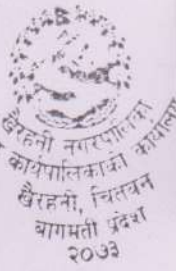 खैरहनी नगरपालिका
कार्यपालिकाको कार्यालय
खैरहनी, चितवन
बागमती प्रदेश
२०७३